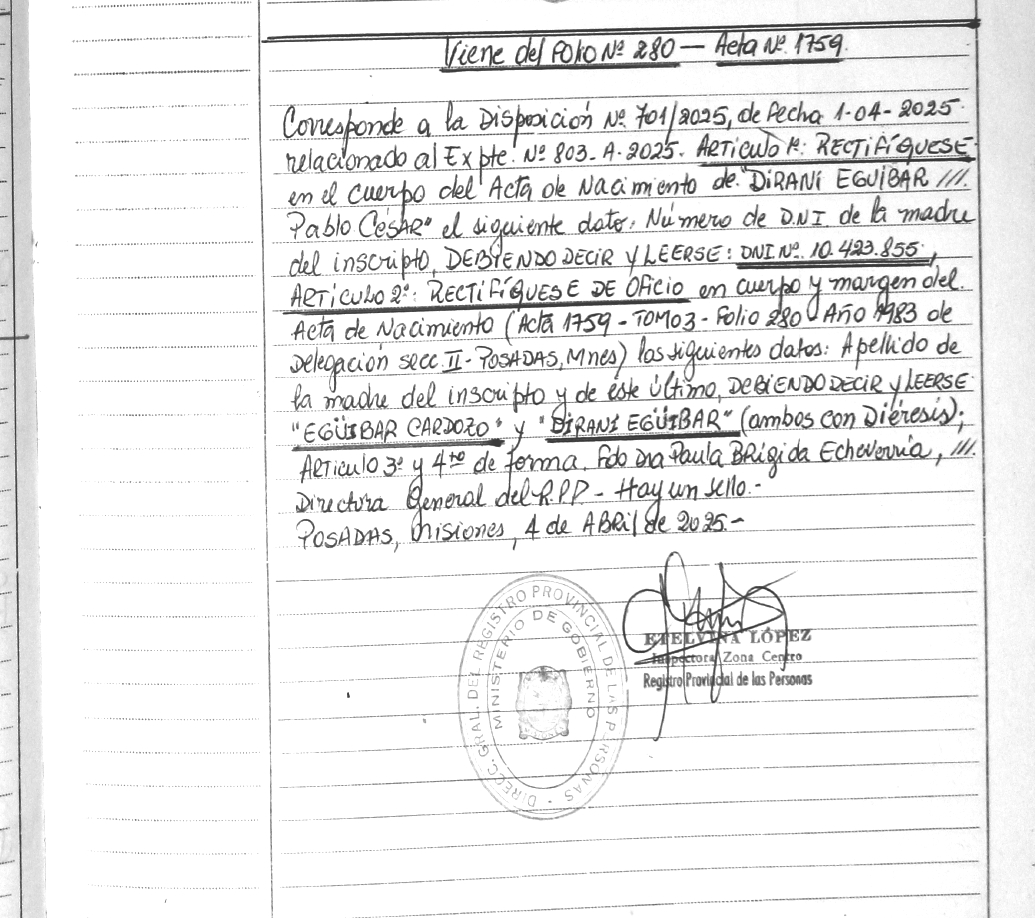 Viene del FOLIO Nº 280 — Acta Nº 1759.
Corresponde a la Disposición Nº 701/2025, de fecha 1-04-2025
relacionado al Expte. Nº 803-A-2025. ARTICULO 1º: RECTIFÍQUESE
en el cuerpo del Acta de Nacimiento de "DIRANI EGUIBAR ///.
Pablo CÉSAR" el siguiente dato: Número de D.N.I. de la madre
del inscripto, DEBIENDO DECIR y LEERSE: DNI Nº. 10.423.855;
ARTÍCULO 2º: RECTIFÍQUESE DE OFICIO en cuerpo y margen del
Acta de Nacimiento (Acta 1759 - TOMO 3 - Folio 280 - Año 1983 de
Delegación secc. II - POSADAS, Mnes) los siguientes datos: Apellido de
la madre del inscripto y de éste último, DEBIENDO DECIR y LEERSE:
"EGÜIBAR CARDOZO" y "DIRANI EGÜIBAR" (ambos con Diéresis);
ARTICULO 3º y 4to de forma. Fdo Dra Paula BRÍGIDA Echeverría, ///.
Directora General del R.P.P - Hay un sello.-
POSADAS, Misiones, 4 de ABRIL de 2025.-
DIRECC. GRAL. DEL REGISTRO PROVINCIAL DE LAS PERSONAS
MINISTERIO DE GOBIERNO
ETELVINA LÓPEZ
Inspectora Zona Centro
Registro Provincial de las Personas